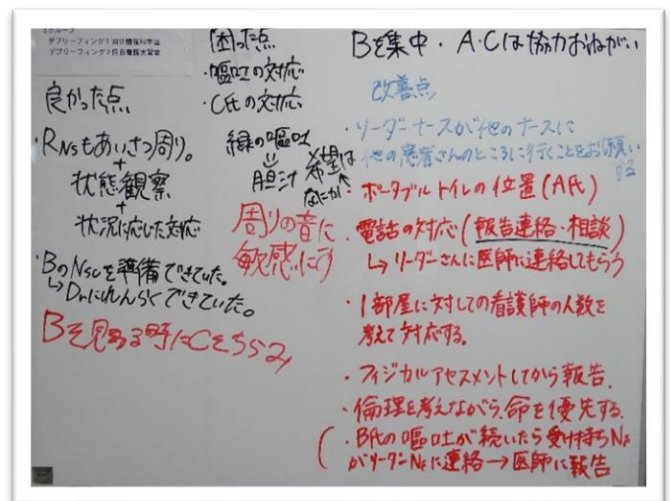 グループ
デブリーフィング1
デブリーフィング2
良かった点
・RNsもあいさつ周り。
+
状態観察
+
状況に応じた対応
・BのNsCを準備できていた。
↳Drにれんらくできていた。
Bを見る時にCをちら見
困った点
・嘔吐の対応
・C氏の対応
緑の嘔吐
胆汁
希望は
なにか
周りの音に
敏感になり
Bを集中・A・Cは協力おねがい
改善点
・リーダーナースが他のナースに
他の患者さんのところに行くことをお願い
する
・ポータブルトイレの位置(A氏)
・電話の対応(報告連絡・相談)
↳リーダーさんに医師に連絡してもらう
・1部屋に対しての看護師の人数を
考えて対応する。
・フィジカルアセスメントしてから報告。
・倫理を考えながら、命を優先する。
・B氏の嘔吐が続いたら受け持ちNs
がリーダーNsに連絡→医師に報告